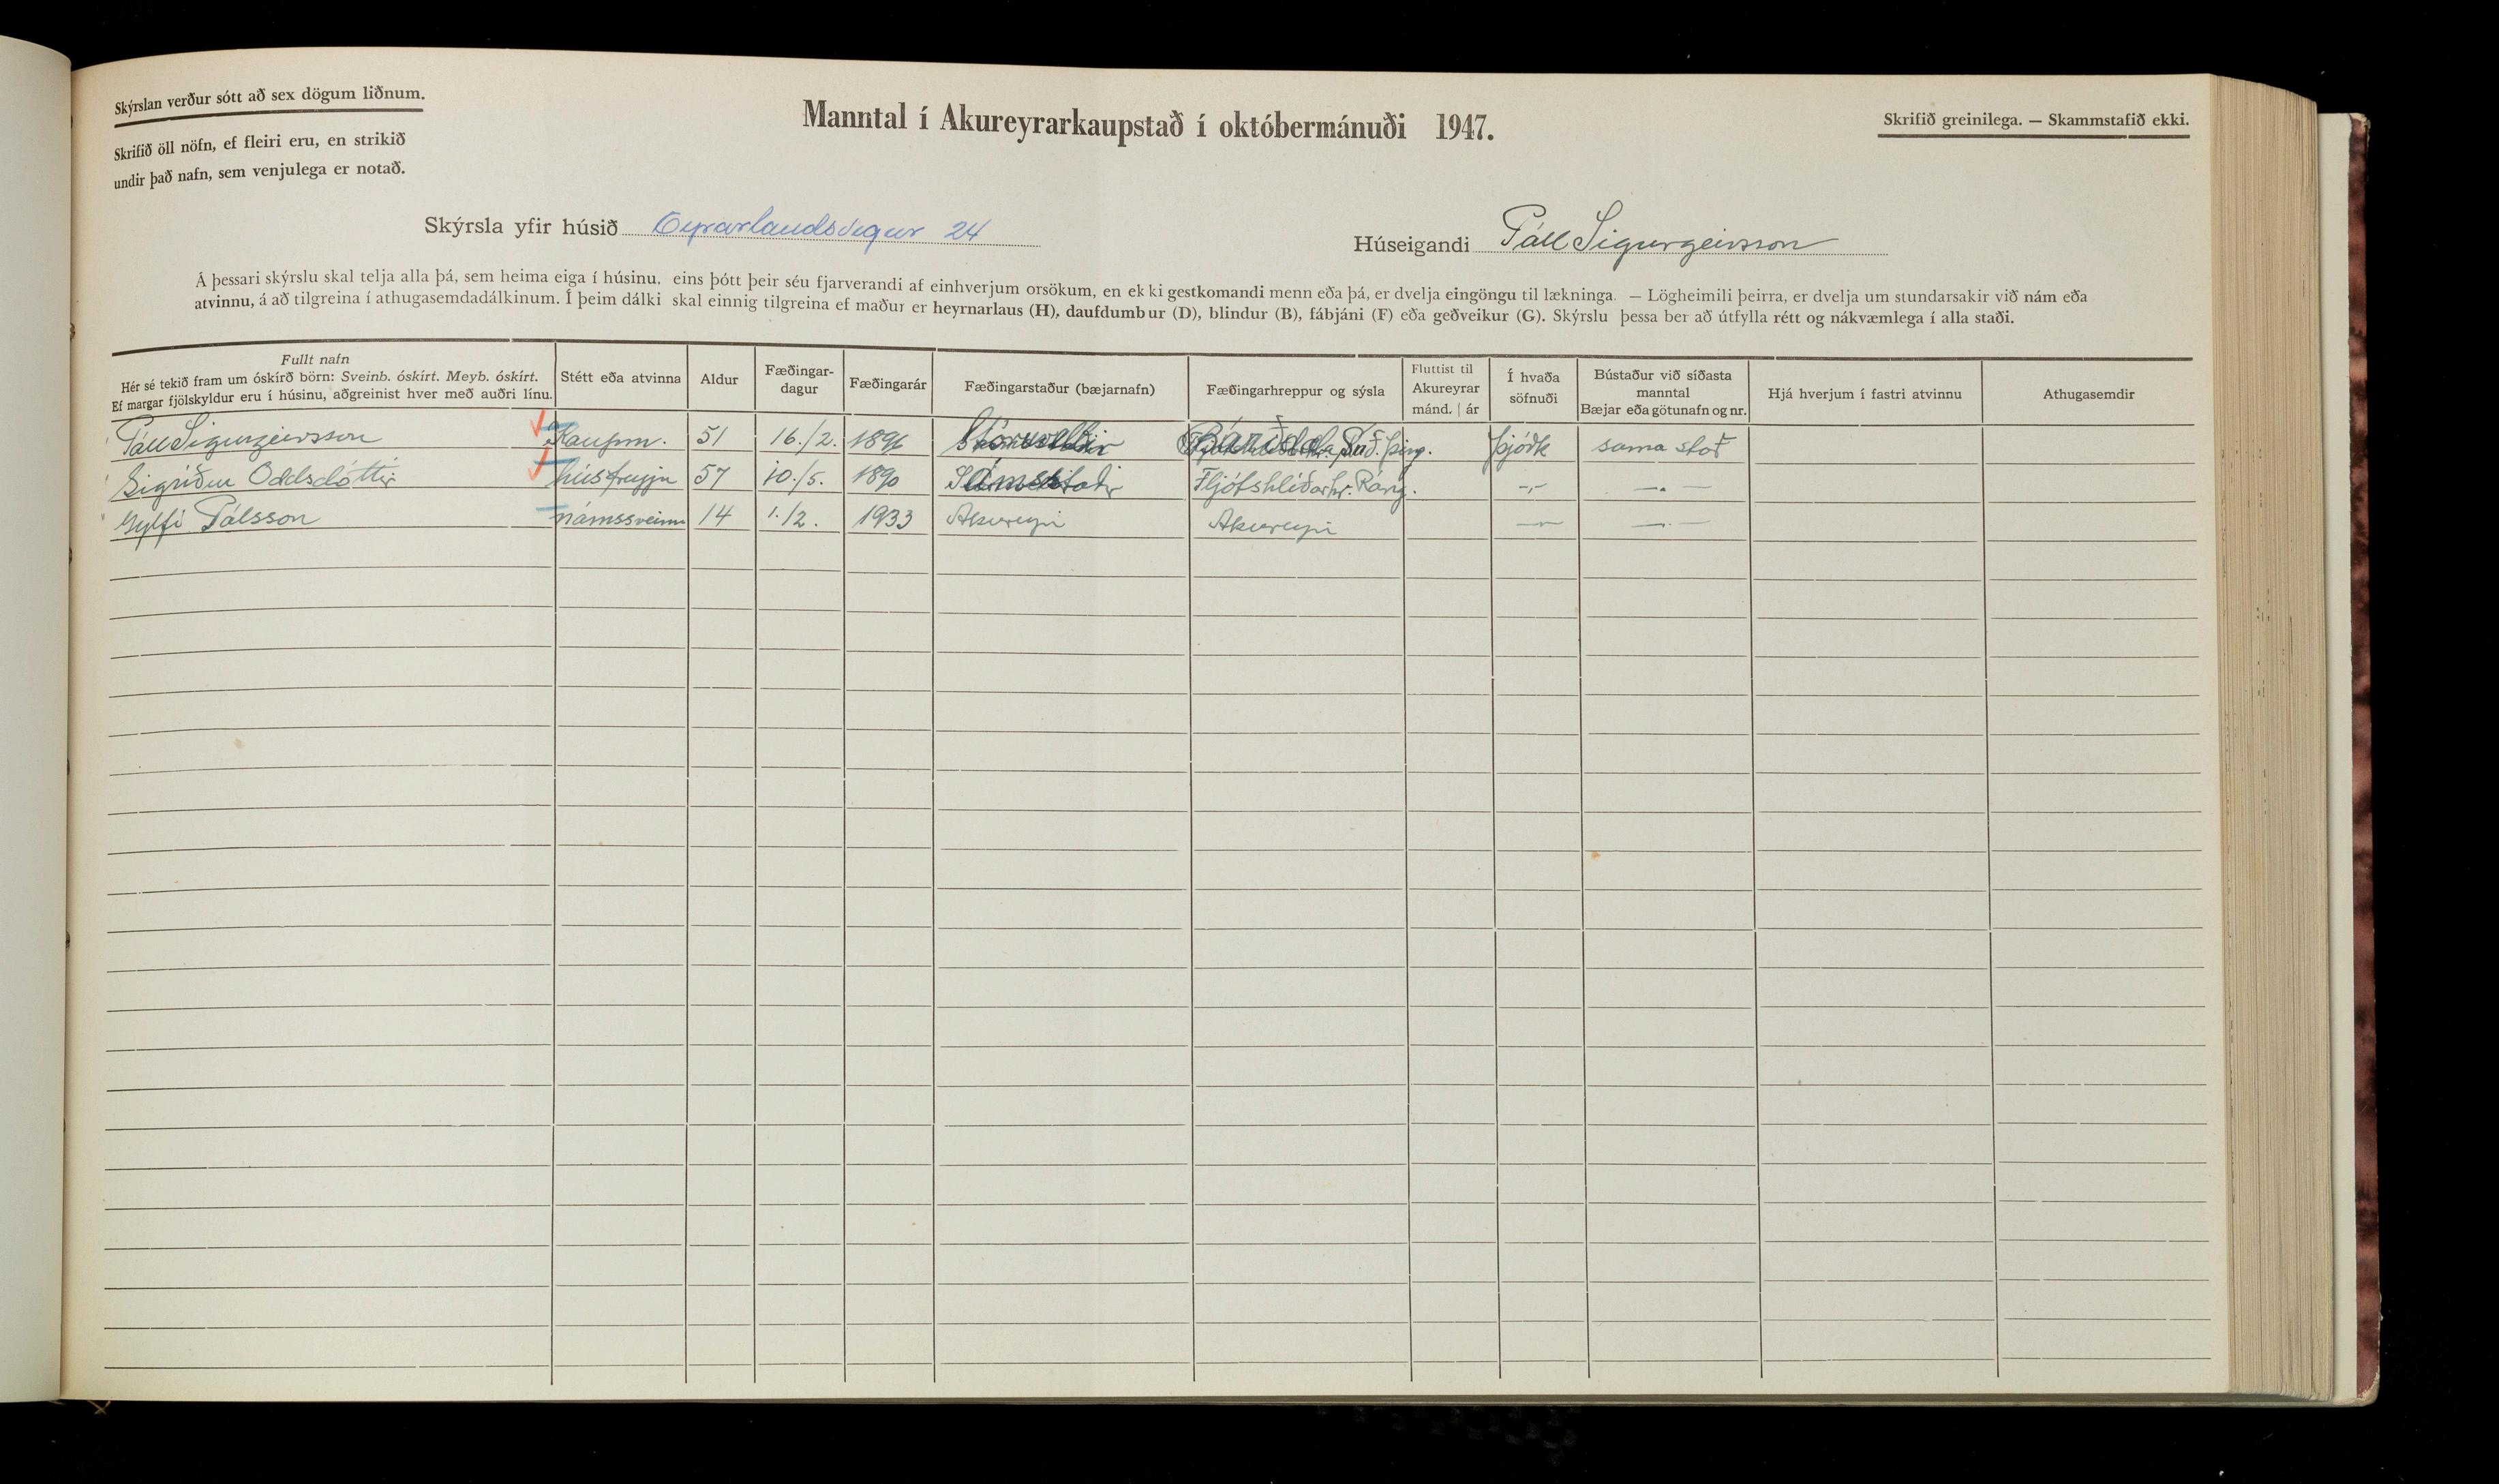 Skýrslan verður sótt að sex dögum liðnum.
Skrifið öll nöfn, ef fleiri eru, en strikið
undir það nafn, sem venjulega er notað.
Manntal í Akureyrarkaupstað í októbermánuði 1947.
Skrifið greinilega. — Skammstafið ekki.
Skýrsla yfir húsið Eyrarlandsvegur 24
Húseigandi Páll Sigurgeirsson
Á þessari skýrslu skal telja alla þá, sem heima eiga í húsinu, eins þótt þeir séu fjarverandi af einhverjum orsökum, en ekki gestkomandi menn eða þá, er dvelja eingöngu til lækninga. — Lögheimili þeirra, er dvelja um stundarsakir við nám eða
atvinnu, á að tilgreina í athugasemdadálkinum. Í þeim dálki skal einnig tilgreina ef maður er heyrnarlaus (H), daufdumbur (D), blindur (B), fábjáni (F) eða geðveikur (G). Skýrslu þessa ber að útfylla rétt og nákvæmlega í alla staði.
Fullt nafn
Hér sé tekið fram um óskírð börn: Sveinb. óskírt. Meyb. óskírt.
Ef margar fjölskyldur eru í húsinu, aðgreinist hver með auðri línu.
Stétt eða atvinna
Aldur
Fæðingar-
dagur
Fæðingarár
Fæðingarstaður (bæjarnafn)
Fæðingarhreppur og sýsla
Fluttist til
Akureyrar
mánd. | ár
Í hvaða
söfnuði
Bústaður við síðasta
manntal
Bæjar eða götunafn og nr.
Hjá hverjum í fastri atvinnu
Athugasemdir
Páll Sigurgeirsson Kaupm. 51 16./2. 1896 Stóruvellir Bárðd. Suð. Þing. Þjóðk sama stað
Sigríður Oddsdóttir húsfreyja 57 10./5. 1890 Sámsstaðir Fljótshlíðarhr. Rang. -,- —.—
Gylfi Pálsson námssveinn 14 1./2. 1933 Akureyri Akureyri —.— —.—